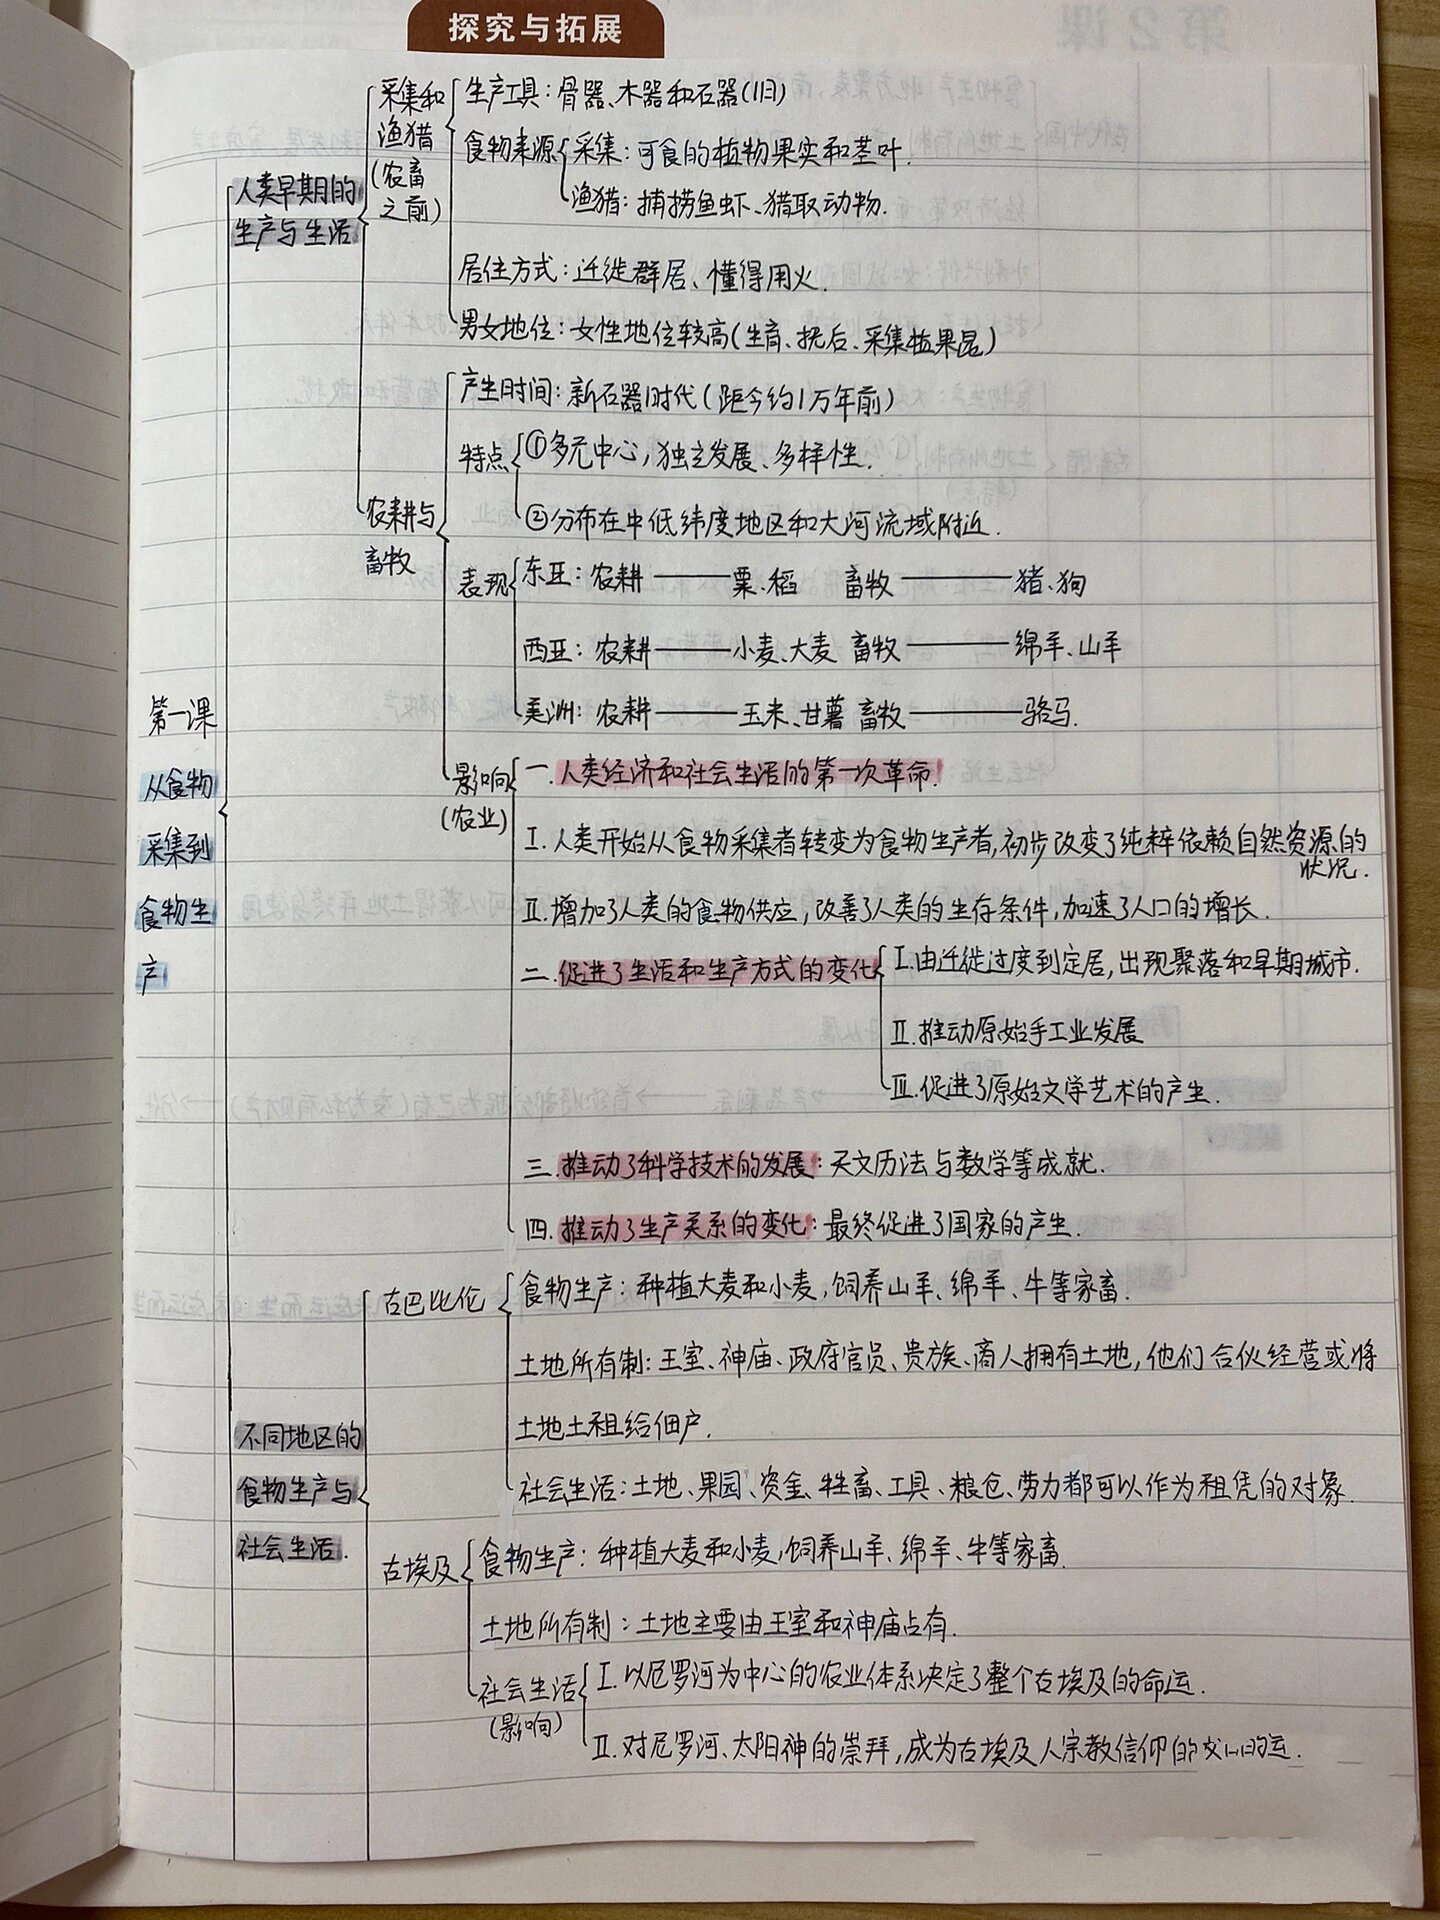 探究与拓展
第一课
从食物
采集到
食物生
产
人类早期的
生产与生活
采集和
渔猎
(农畜
之前)
生产工具：骨器、木器和石器(旧)
食物来源
采集：可食的植物果实和茎叶.
渔猎：捕捞鱼虾、猎取动物.
居住方式：迁徙群居、懂得用火.
男女地位：女性地位较高(生育、抚后、采集植果昆)
农耕与
畜牧
产生时间：新石器时代(距今约1万年前)
特点
①多元中心,独立发展、多样性.
②分布在中低纬度地区和大河流域附近.
表现
东亚：农耕——粟、稻 畜牧——猪、狗
西亚：农耕——小麦、大麦 畜牧——绵羊、山羊
美洲：农耕——玉米、甘薯 畜牧——骆马.
影响
(农业)
一.人类经济和社会生活的第一次革命!
Ⅰ.人类开始从食物采集者转变为食物生产者,初步改变了纯粹依赖自然资源的
状况.
Ⅱ.增加了人类的食物供应,改善了人类的生存条件,加速了人口的增长.
二.促进了生活和生产方式的变化
Ⅰ.由迁徙过度到定居,出现聚落和早期城市.
Ⅱ.推动原始手工业发展
Ⅲ.促进了原始文学艺术的产生.
三.推动了科学技术的发展：天文历法与数学等成就.
四.推动了生产关系的变化：最终促进了国家的产生.
不同地区的
食物生产与
社会生活.
古巴比伦
食物生产：种植大麦和小麦,饲养山羊、绵羊、牛等家畜.
土地所有制：王室、神庙、政府官员、贵族、商人拥有土地,他们合伙经营或将
土地土租给佃户.
社会生活：土地、果园、资金、牲畜、工具、粮仓、劳力都可以作为租凭的对象.
古埃及
食物生产：种植大麦和小麦,饲养山羊、绵羊、牛等家畜.
土地所有制：土地主要由王室和神庙占有.
社会生活
(影响)
Ⅰ.以尼罗河为中心的农业体系决定了整个古埃及的命运.
Ⅱ.对尼罗河、太阳神的崇拜,成为古埃及人宗教信仰的